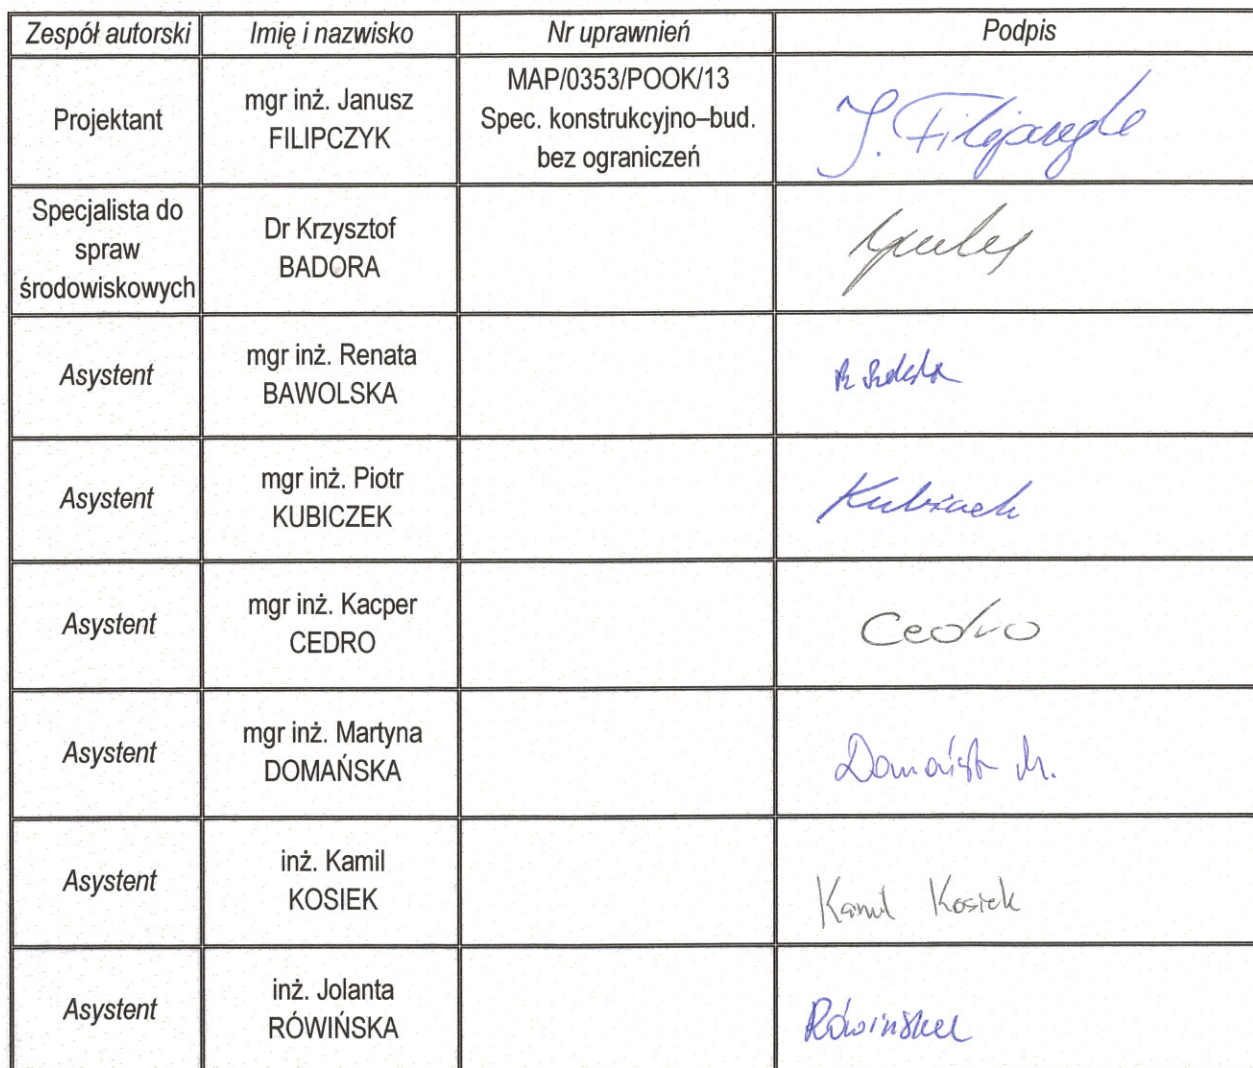 Zespół autorski Imię i nazwisko Nr uprawnień Podpis
Projektant
mgr inż. Janusz
FILIPCZYK
MAP/0353/POOK/13
Spec. konstrukcyjno–bud.
bez ograniczeń
J. Filipczyk
Specjalista do
spraw
środowiskowych
Dr Krzysztof
BADORA
Asystent
mgr inż. Renata
BAWOLSKA
Asystent
mgr inż. Piotr
KUBICZEK
Kubiczek
Asystent
mgr inż. Kacper
CEDRO
Cedro
Asystent
mgr inż. Martyna
DOMAŃSKA
Domańska M.
Asystent
inż. Kamil
KOSIEK
Kamil Kosiek
Asystent
inż. Jolanta
RÓWIŃSKA
Rówińska